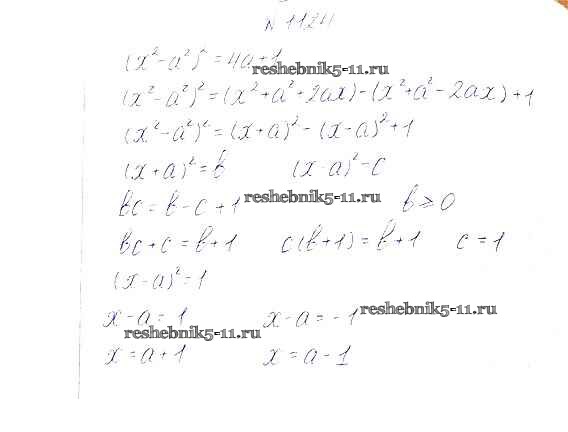 N 1124
(x² - a²)² = 4a + 1
reshebnik5-11.ru
(x² - a²)² = (x² + a² + 2ax) - (x² + a² - 2ax) + 1
(x² - a²)² = (x + a)² - (x - a)² + 1
(x + a)² = b (x - a)² = c
bc = b - c + 1 reshebnik5-11.ru b ≥ 0
bc + c = b + 1 c(b + 1) = b + 1 c = 1
(x - a)² = 1
x - a = 1 x - a = -1 reshebnik5-11.ru
reshebnik5-11.ru
x = a + 1 x = a - 1